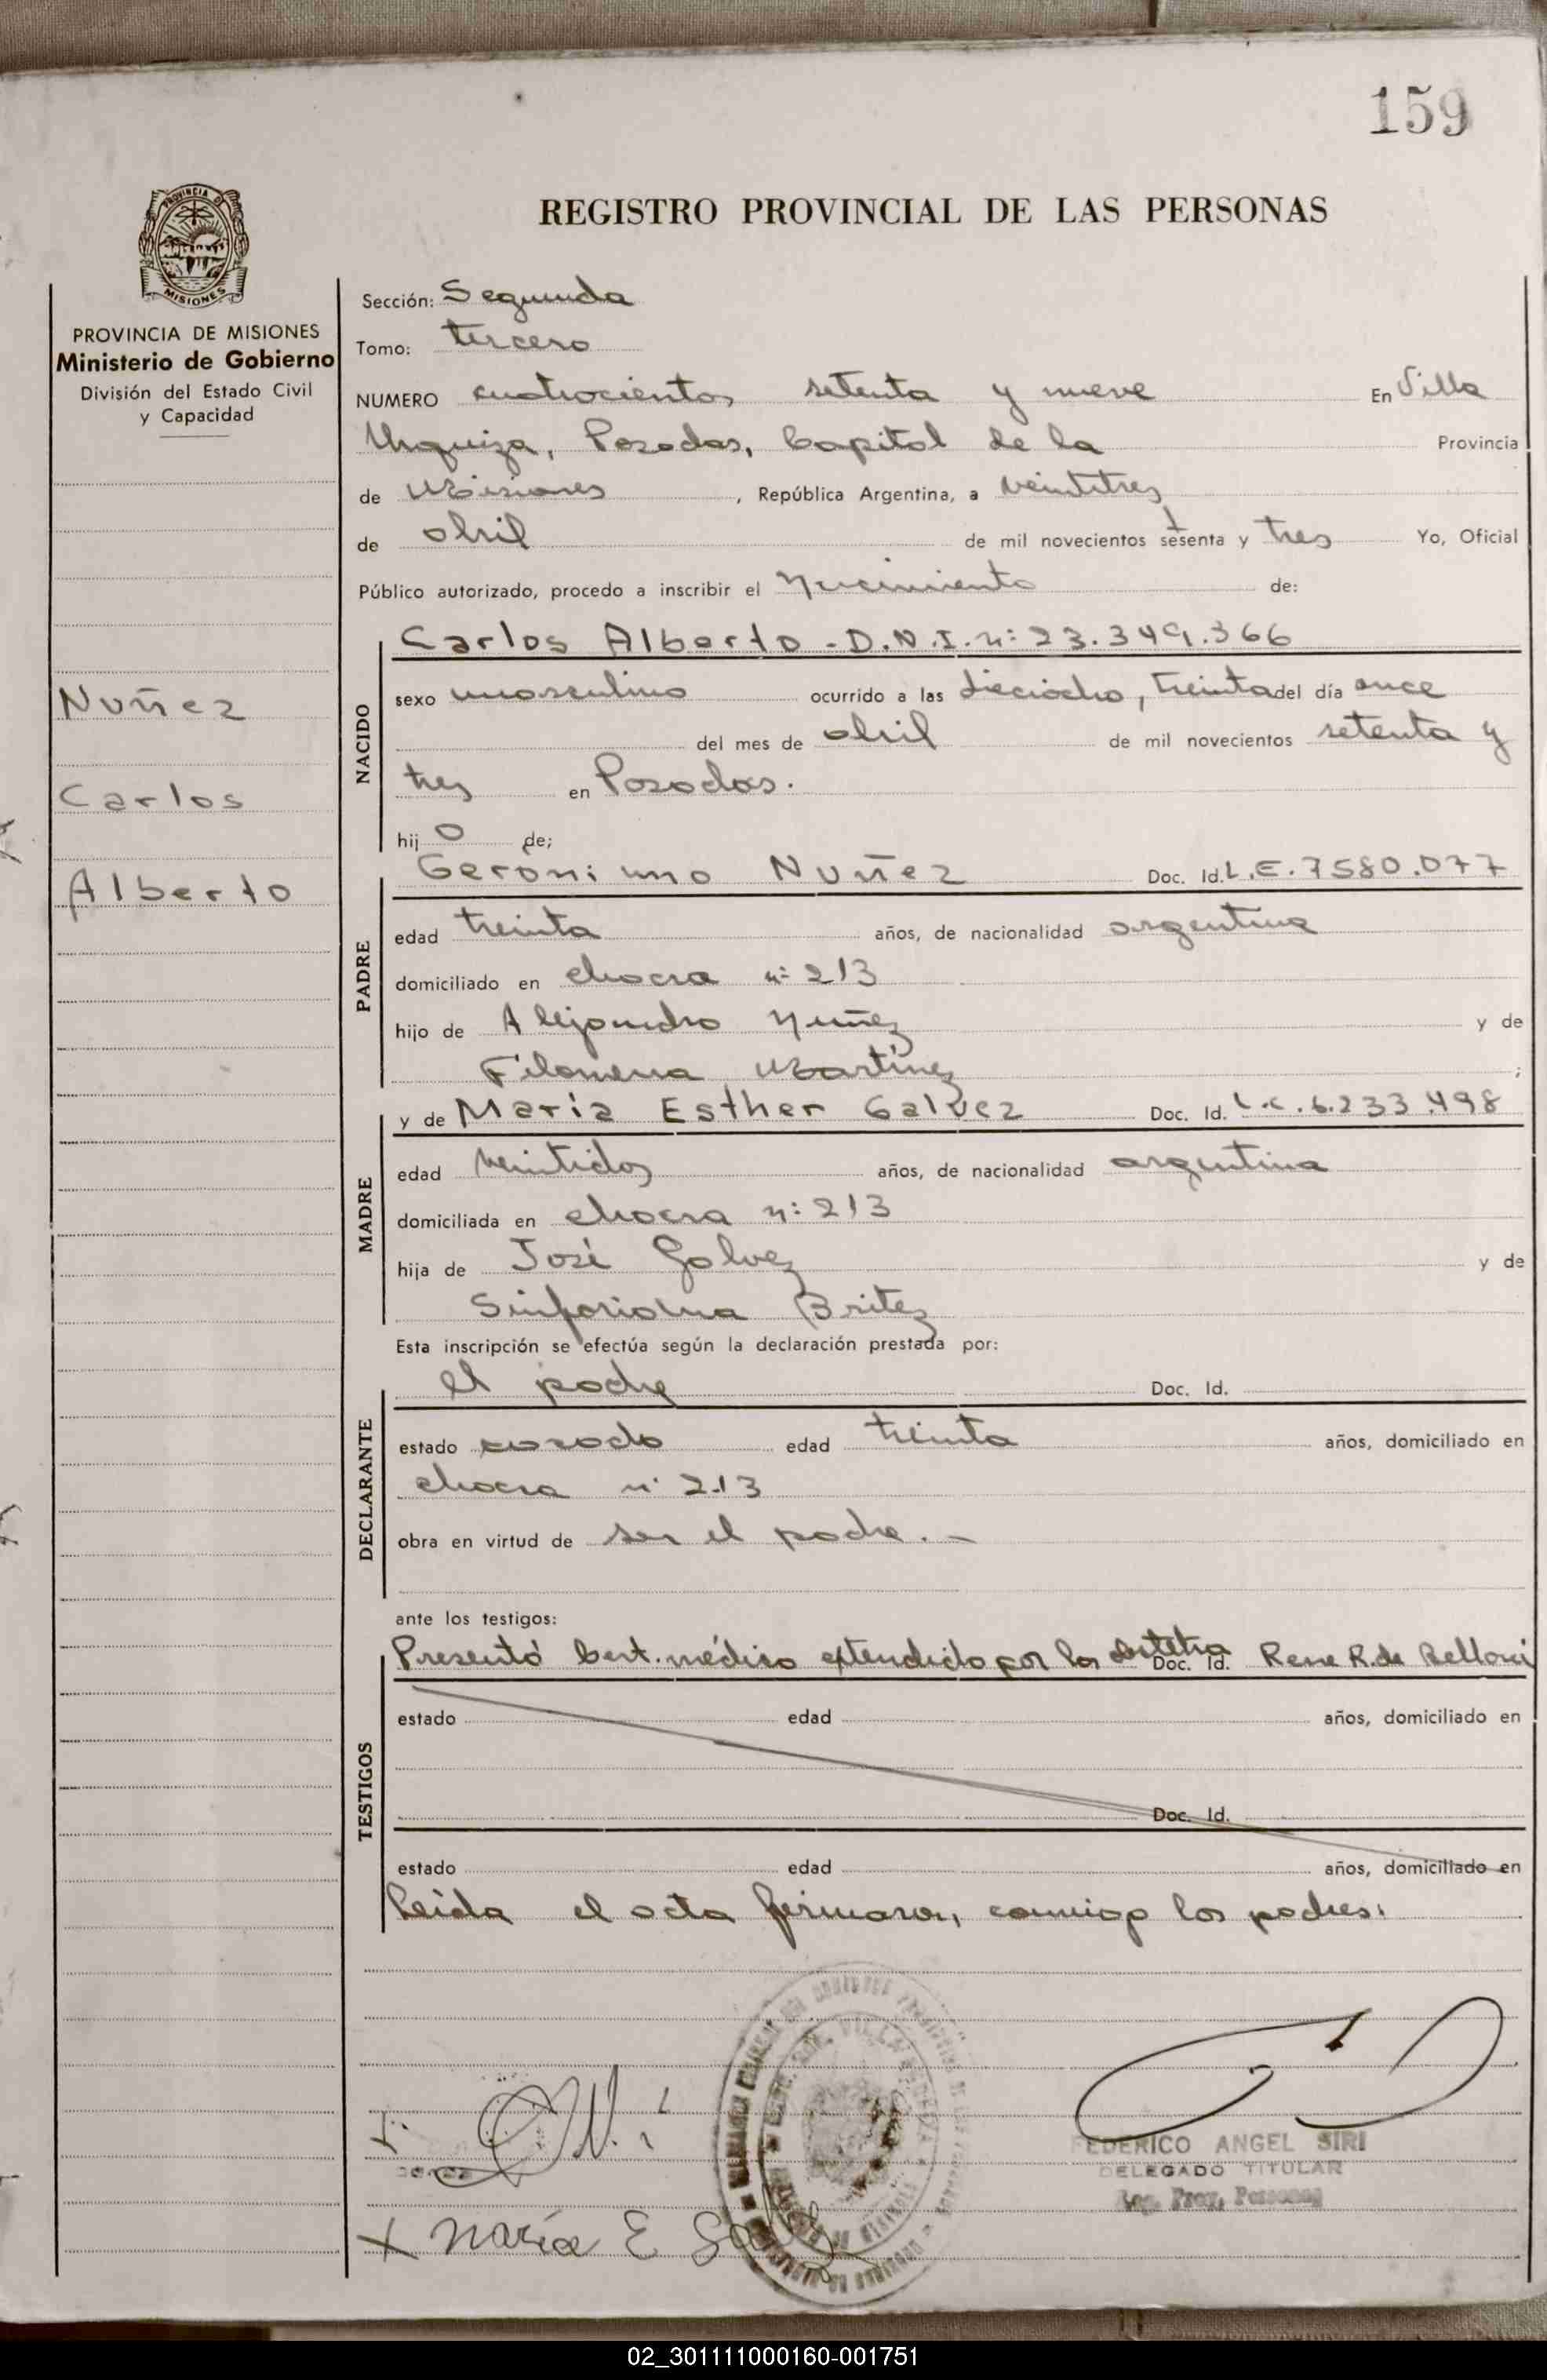 159
REGISTRO PROVINCIAL DE LAS PERSONAS
PROVINCIA DE
MISIONES
PROVINCIA DE MISIONES
Ministerio de Gobierno
División del Estado Civil
y Capacidad
Nuñez
Carlos
Alberto
Sección: Segunda
Tomo: tercero
NUMERO cuatrocientos setenta y nueve En Villa
Urquiza, Posadas, Capital de la Provincia
de Misiones, República Argentina, a veintitres
de abril de mil novecientos setenta y tres Yo, Oficial
Público autorizado, procedo a inscribir el Nacimiento de:
NACIDO
Carlos Alberto - D.N.I. n: 23.349.366
sexo masculino ocurrido a las dieciocho, treinta del día once
del mes de abril de mil novecientos setenta y
tres en Posadas.
hijo de;
PADRE
Gerónimo Nuñez Doc. Id. L.E. 7580.077
edad treinta años, de nacionalidad argentina
domiciliado en chacra n: 213
hijo de Alejandro Nuñez y de
Filomena Martínez ;
MADRE
y de María Esther Galvez Doc. Id. L.C. 6.233.498
edad veintidos años, de nacionalidad argentina
domiciliada en chacra n: 213
hija de José Galvez y de
Sinforiana Britez
Esta inscripción se efectúa según la declaración prestada por:
DECLARANTE
el padre Doc. Id.
estado casado edad treinta años, domiciliado en
chacra n 213
obra en virtud de ser el padre. -
ante los testigos:
TESTIGOS
Presentó Cert. médico extendido por la obstetra Doc. Id. Rene R. de Belloni
estado edad años, domiciliado en
Doc. Id.
estado edad años, domiciliado en
Leída el acta firmaron, conmigo los padres.
FEDERICO ANGEL SIRI
DELEGADO TITULAR
Reg. Prov. Personas
X María E
02_301111000160-001751